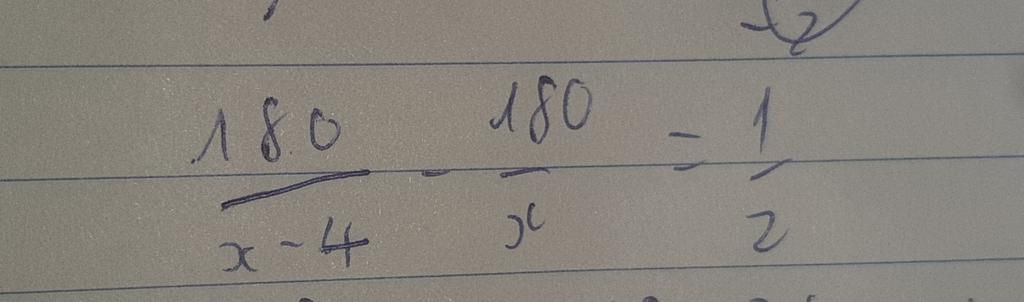 180/(x-4) - 180/x = 1/2